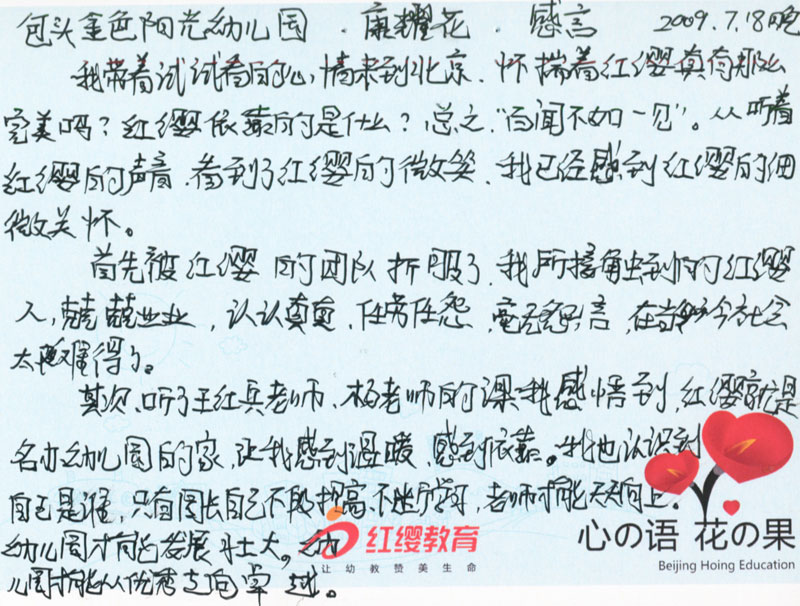 包头金色阳光幼儿园 · 康耀花 · 感言 2009.7.18晚
我带着试试看的心情来到北京、怀揣着红缨真有那么
完美吗?红缨依靠的是什么?总之、"百闻不如一见"。从听着
红缨的声音、看到了红缨的微笑、我已经感到红缨的细
微关怀。
首先被红缨的团队折服了、我所接触到的红缨
人,兢兢业业,认认真真、任劳任怨、毫无怨言,在当今社会
太难得了。
其次、听了王红兵老师、杨老师的课我感悟到,红缨就是
名办幼儿园的家,让我感到温暖、感到依靠。我也认识到
自已是谁,只有园长自己不段提高、不断学习,老师才能天天向上。
幼儿园才能发展壮大。幼
儿园才能从优秀走向卓越。
红缨教育
让幼教赞美生命
心の语 花の果
Beijing Hoing Education